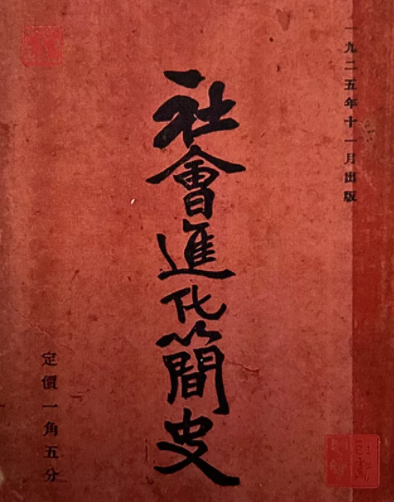 一九二五年十一月出版
社會進化簡史
定價一角五分